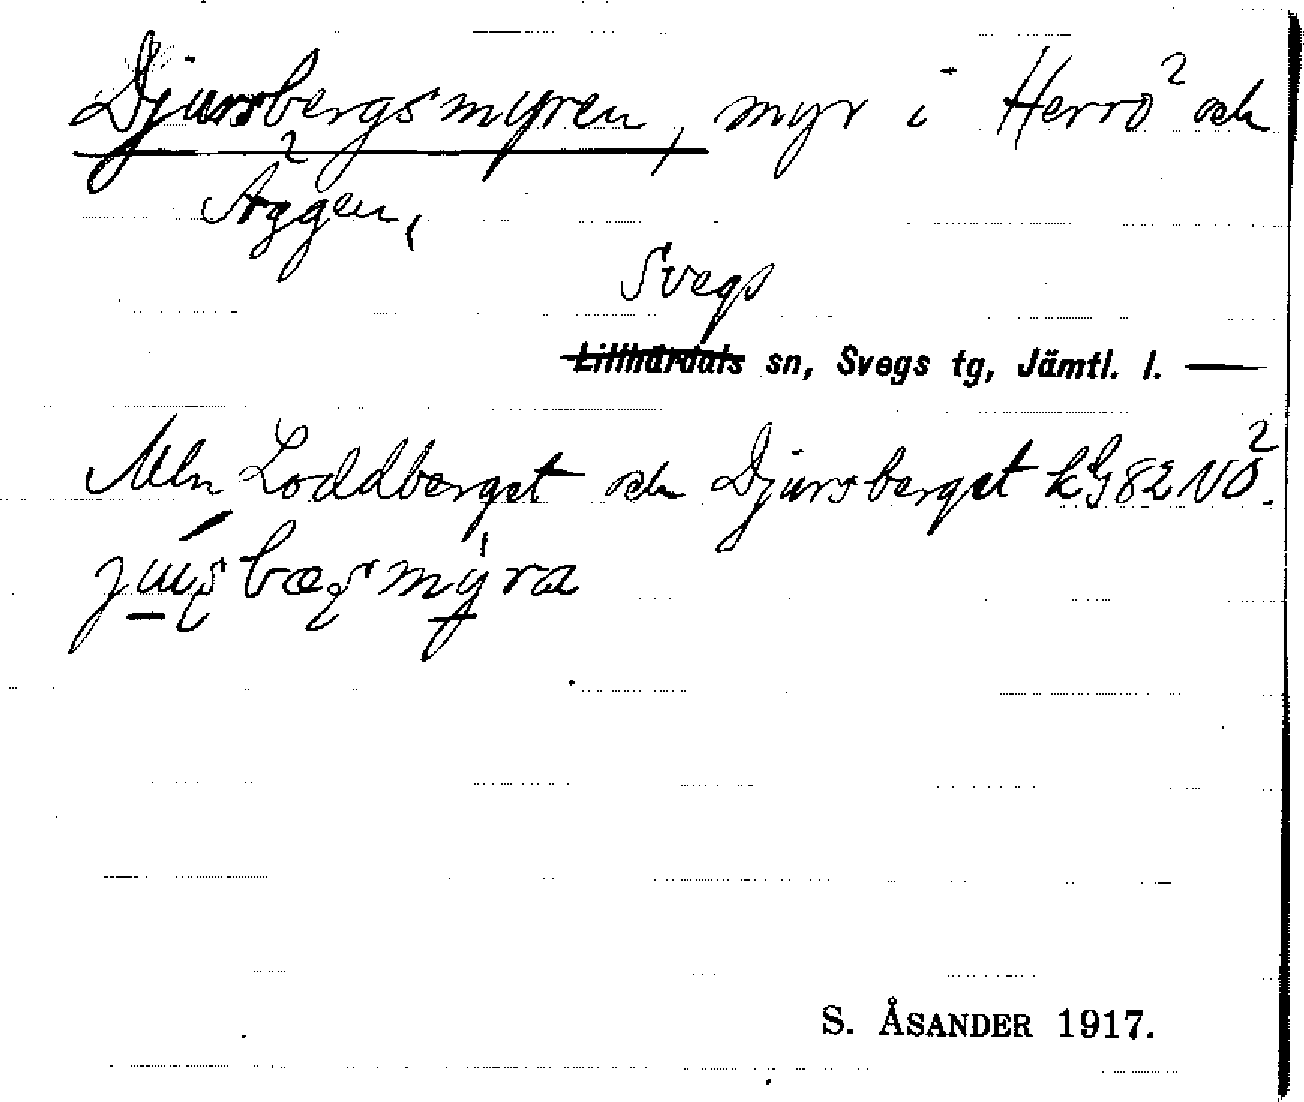 Djursbergsmyren, myr i Herrö och
Äggen,
Svegs
Lillhärdals sn, Svegs tg, Jämtl. l. —
Mln Loddberget och Djursberget kG82NÖ.
S. ÅSANDER 1917.